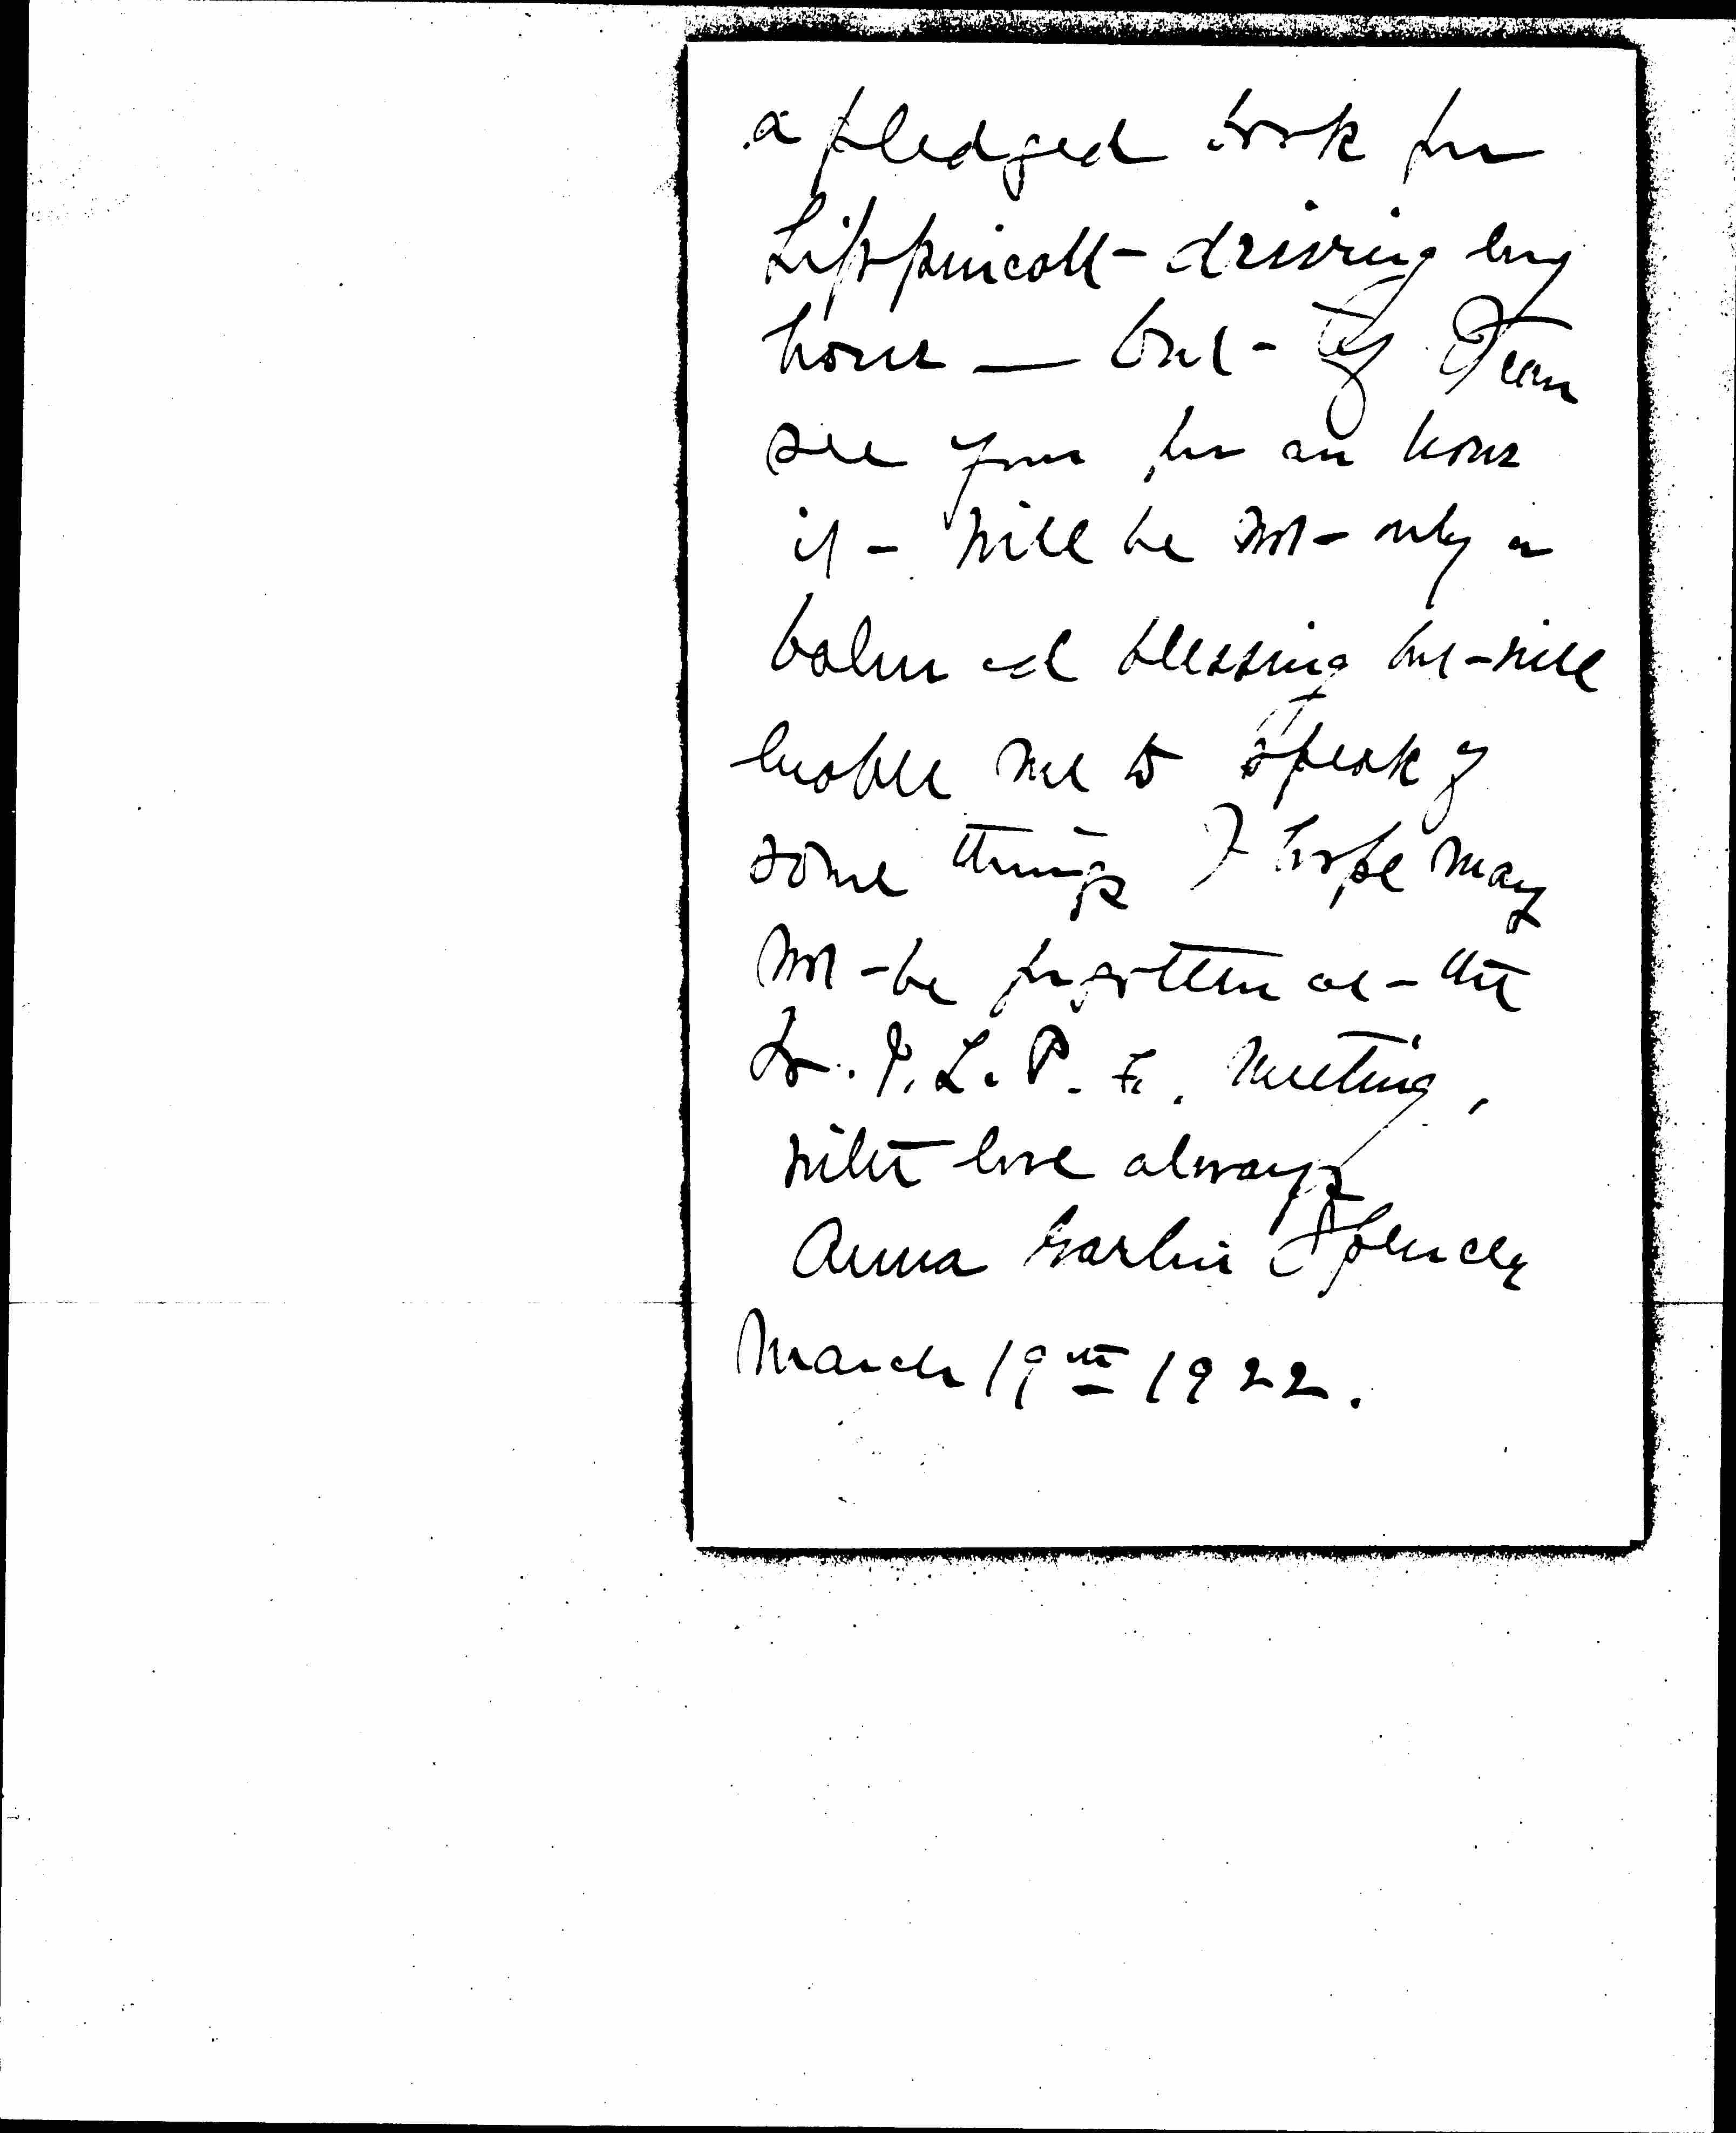 a pledged book for
Lippincott - driving every
hour — but - if I can
see you for an hour
it - will be not - only a
balm and blessing but - will
enable me to speak of
some things I hope may
not - be forgotten at - the
W. I. L. P. F. meeting,
with love always
Anna Garlin Spencer
March 19th 1922.